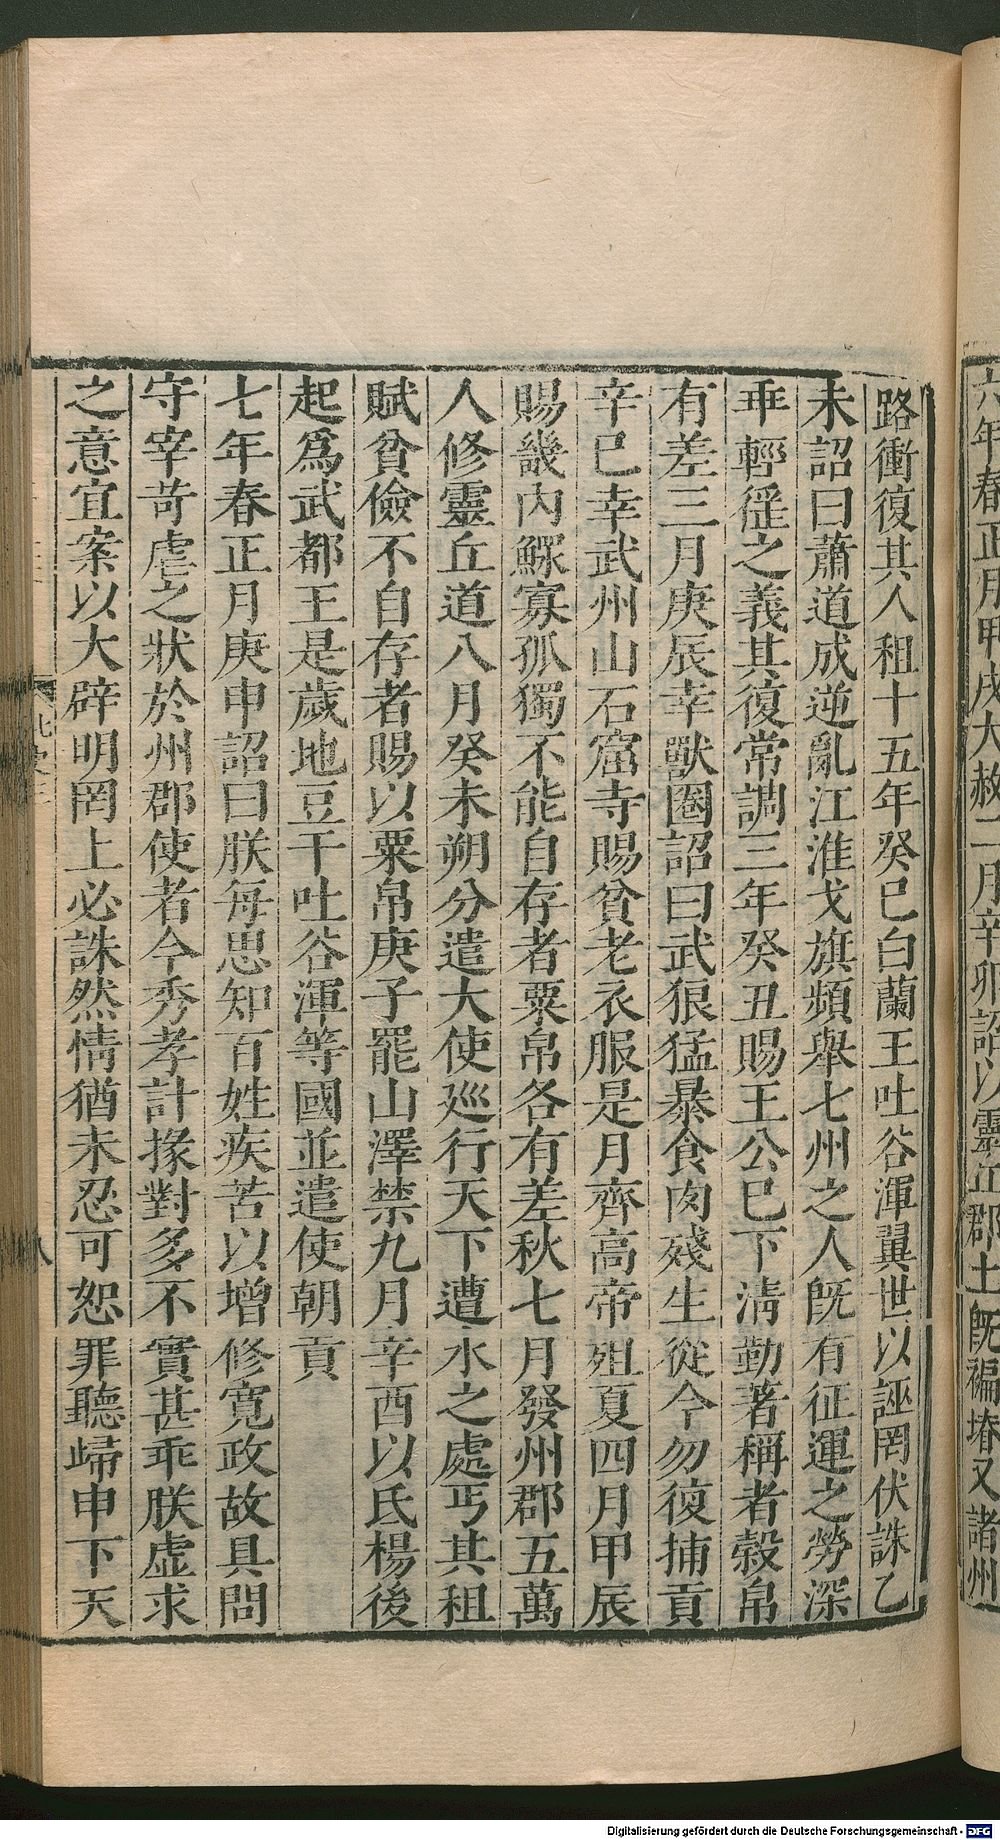 六年春正月甲戌大赦二月辛卯詔以靈丘郡土旣褊塉又諸州
路衝復其人租十五年癸巳白蘭王吐谷渾翼世以誣罔伏誅乙
未詔曰蕭道成逆亂江淮戈旗頻舉七州之人旣有征運之勞深
乖輕徭之義其復常調三年癸丑賜王公巳下淸勤著稱者穀帛
有差三月庚辰幸獸圈詔曰武狼猛暴食肉殘生從今勿復捕貢
辛巳幸武州山石窟寺賜貧老衣服是月齊高帝殂夏四月甲辰
賜畿內鰥寡孤獨不能自存者粟帛各有差秋七月發州郡五萬
人修靈丘道八月癸未朔分遣大使廵行天下遭水之處丐其租
賦貧儉不自存者賜以粟帛庚子罷山澤禁九月辛酉以氐楊後
起爲武都王是歲地豆干吐谷渾等國並遣使朝貢
七年春正月庚申詔曰朕每思知百姓疾苦以增修寬政故具問
守宰苛虐之狀於州郡使者今秀孝計掾對多不實甚乖朕虛求
之意宜案以大辟明罔上必誅然情猶未忍可恕罪聽歸申下天
北史三
八
Digitalisierung gefördert durch die Deutsche Forschungsgemeinschaft - DFG